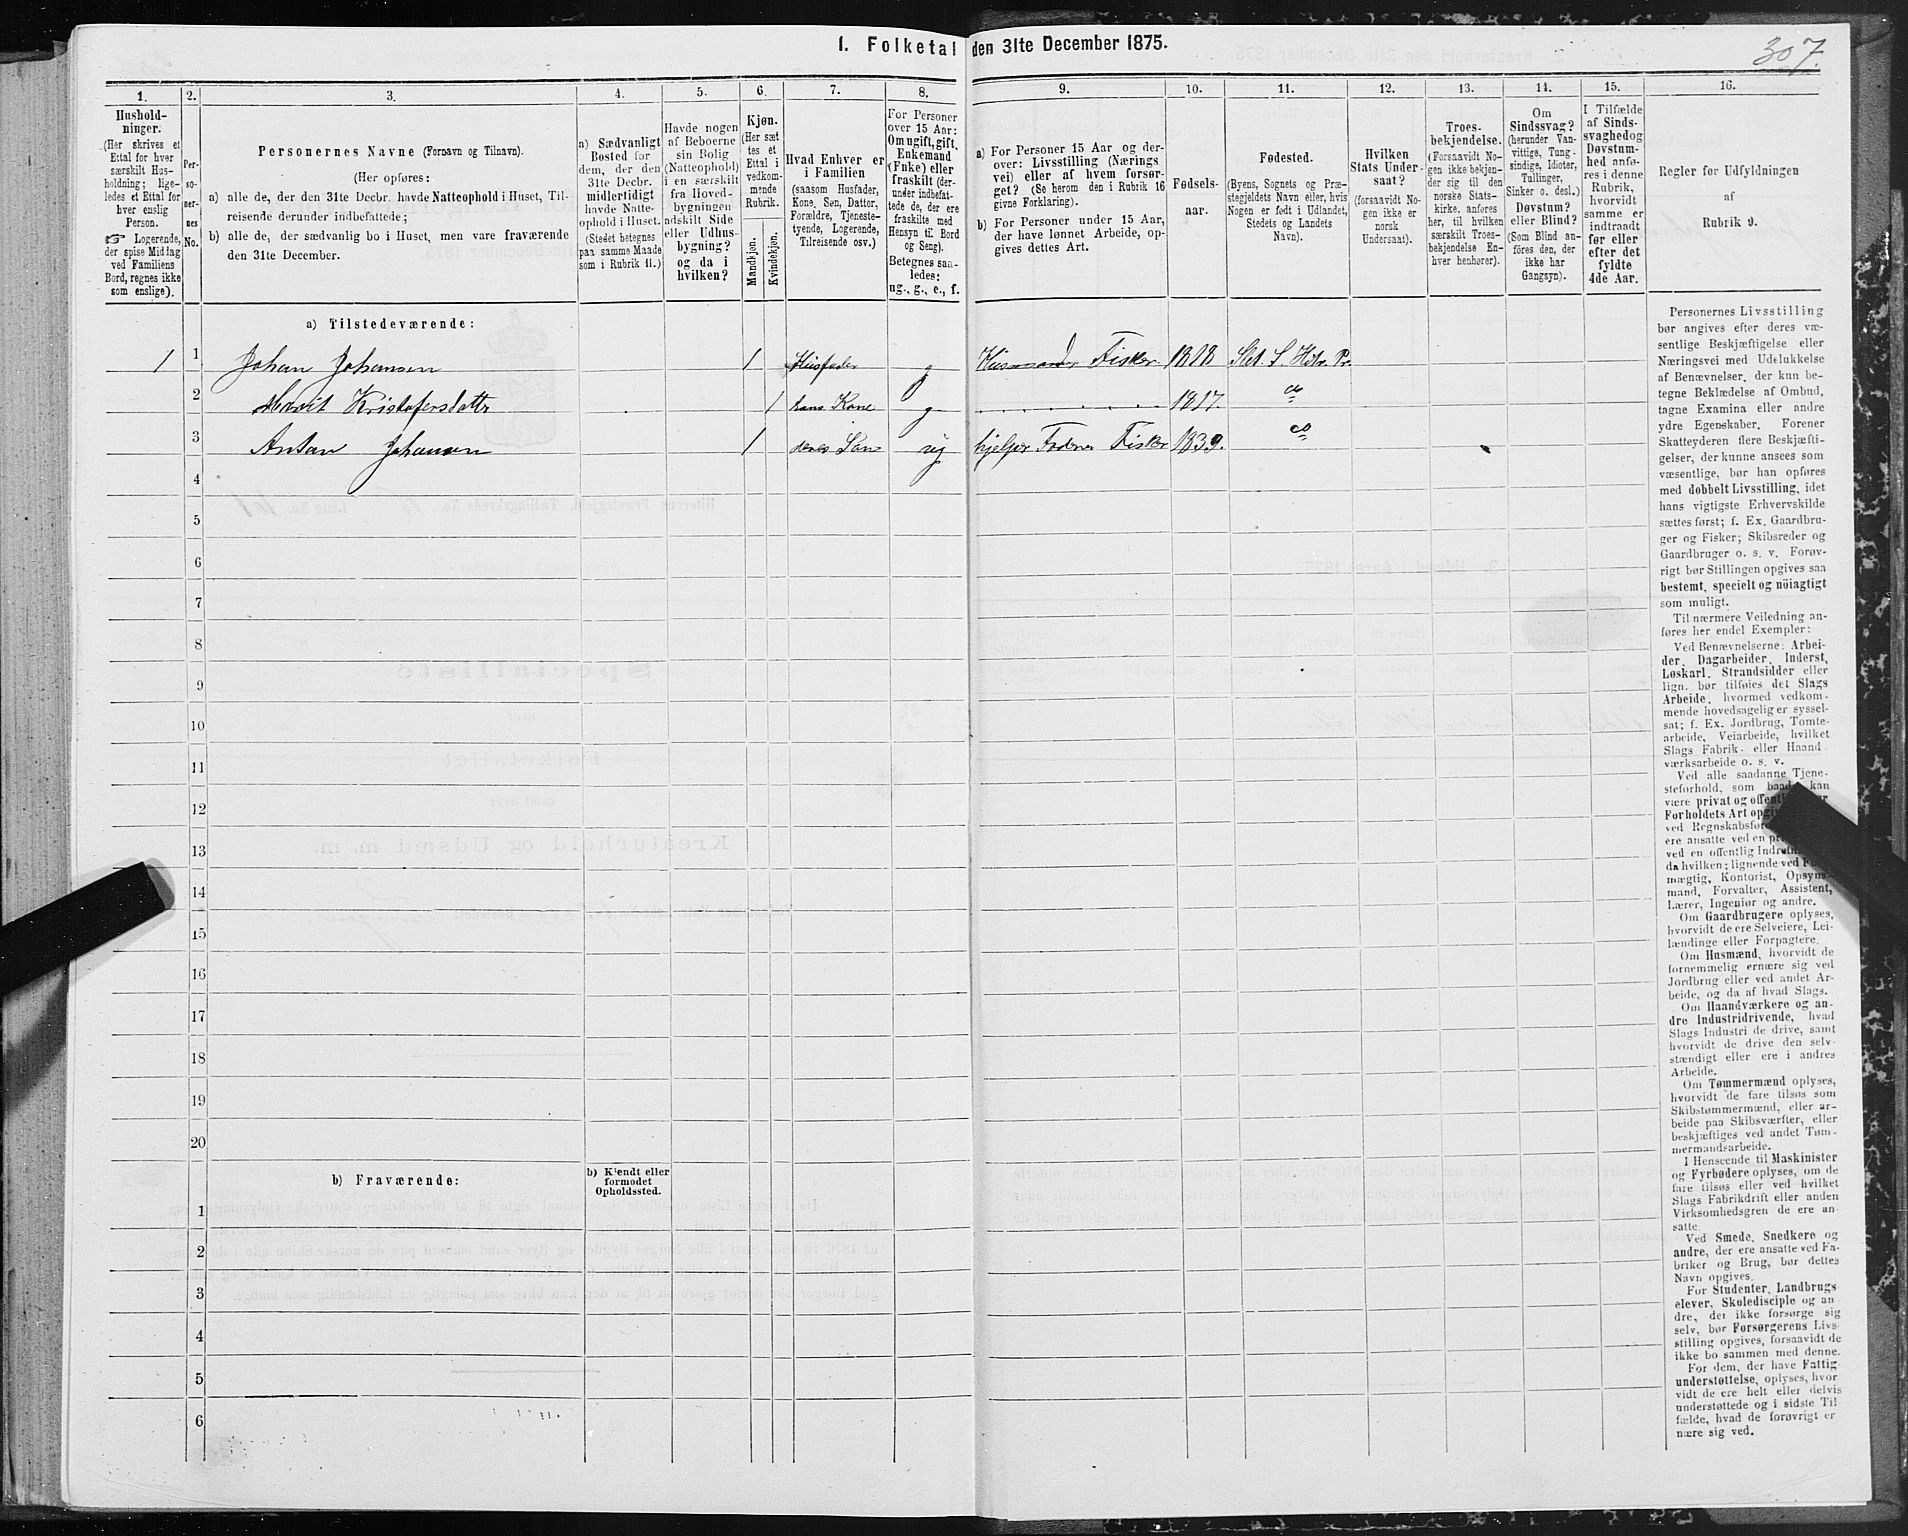 1. Folketal den 31te December 1875.
307.
1. 2. 3. 4. 5. 6. 7. 8. 9. 10. 11. 12. 13. 14. 15. 16.
Hushold-
ninger.
(Her skrives et
Ettal for hver
særskilt Hus-
holdning; lige-
ledes et Ettal for
hver enslig
Person.
☞ Logerende,
der spise Middag
ved Familiens
Bord, regnes ikke
som enslige).
Per-
so-
ner-
nes
No.
Personernes Navne (Fornavn og Tilnavn).
(Her opføres:
a) alle de, der den 31te Decbr. havde Natteophold i Huset, Til-
reisende derunder indbefattede;
b) alle de, der sædvanlig bo i Huset, men vare fraværende
den 31te December.
a) Sædvanligt
Bosted for
dem, der den
31te Decbr.
midlertidigt
havde Natte-
ophold i Huset.
(Stedet betegnes
paa samme Maade
som i Rubrik 11.)
Havde nogen
af Beboerne
sin Bolig
(Natteophold)
i en særskilt
fra Hoved-
bygningen
adskilt Side
eller Udhus-
bygning?
og da i
hvilken?
Kjøn.
(Her sæt-
tes et
Ettal i
vedkom-
mende
Rubrik.
Mandkjøn.
Kvindekjøn.
Hvad Enhver er
i Familien
(saasom Husfader,
Kone, Søn, Datter,
Forældre, Tjeneste-
tyende, Logerende,
Tilreisende osv.)
For Personer
over 15 Aar:
Om ugift, gift,
Enkemand
(Enke) eller
fraskilt (der-
under indbefat-
tede de, der ere
fraskilte med
Hensyn til Bord
og Seng).
Betegnes saa-
ledes:
ug., g., e., f.
a) For Personer 15 Aar og der-
over: Livsstilling (Nærings-
vei) eller af hvem forsør-
get? (Se herom den i Rubrik 16
givne Forklaring).
b) For Personer under 15 Aar,
der have lønnet Arbeide, op-
gives dettes Art.
Fødsels-
aar.
Fødested.
(Byens, Sognets og Præ-
stegjeldets Navn eller, hvis
Nogen er født i Udlandet,
Stedets og Landets
Navn).
Hvilken
Stats Under-
saat?
(forsaavidt No-
gen ikke er
norsk
Undersaat).
Troes-
bekjendelse.
(Forsaavidt No-
gen ikke bekjen-
der sig til den
norske Stats-
kirke, anføres
her, til hvilken
særskilt Troes-
bekjendelse En-
hver henhører).
Om
Sindssvag?
(herunder Van-
vittige, Tung-
sindige, Idioter,
Tullinger,
Sinker o. desl.)
Døvstum?
eller Blind?
(Som Blind an-
føres den, der
ikke har
Gangsyn).
I Tilfælde
af Sinds-
svaghed og
Døvstum-
hed anfø-
res i denne
Rubrik,
hvorvidt
samme er
indtraadt
før eller
efter det
fyldte
4de Aar.
Regler før Udfyldningen
af
Rubrik 9.
a) Tilstedeværende:
1 1 Johan Johansen 1 Husfader g Husmand Fisker 1818 Slet. S. Hitr. Pr.
2 Marit Kristofersdatter 1 hans Kone g 1817. do
3 Antan Johansen 1 deres Søn ug hjelper Faderen Fisker 1839. do
4
5
6
7
8
9
10
11
12
13
14
15
16
17
18
19
20
b) Fraværende:
b) Kjendt eller
formodet
Opholdssted.
1
2
3
4
5
6
Personernes Livsstilling
bør angives efter deres væ-
sentlige Beskjæftigelse eller
Næringsvei med Udelukkelse
af Benævnelser, der kun be-
tegne Beklædelse af Ombud,
tagne Examina eller andre
ydre Egenskaber. Forener
Skatteyderen flere Beskjæfti-
gelser, der kunne ansees som
væsentlige, bør han opføres
med dobbelt Livsstilling, idet
hans vigtigste Erhvervskilde
sættes først; f. Ex. Gaardbru-
ger og Fisker; Skibsreder og
Gaardbruger o. s. v. Forøv-
rigt bør Stillingen opgives saa
bestemt, specielt og nöiagtigt
som muligt.
Til nærmere Veiledning an-
føres her endel Exempler:
Ved Benævnelserne: Arbei-
der, Dagarbeider, Inderst,
Løskarl, Strandsidder eller
lign. bør tilføies det Slags
Arbeide, hvormed vedkom-
mende hovedsagelig er syssel-
sat; f. Ex. Jordbrug, Tomte-
arbeide, Veiarbeide, hvilket
Slags Fabrik- eller Haand-
værksarbeide o. s. v.
Ved alle saadanne Tjene-
steforhold, som baade kan
være privat og offentlig
Forholdets Art
ved
ere ansatte ved en
ved en offentlig
da hvilken; lignende ved
mægtig, Kontorist, Opsyns-
mand, Forvalter, Assistent,
Lærer, Ingeniør og andre.
Om Gaardbrugere oplyses,
hvorvidt de ere Selveiere, Lei-
lændinge eller Forpagtere.
Om Husmænd, hvorvidt de
fornemmelig ernære sig ved
Jordbrug eller ved andet Ar-
beide, og da af hvad Slags.
Om Haandværkere og an-
dre Industridrivende, hvad
Slags Industri de drive, samt
hvorvidt de drive den selv-
stændigt eller ere i andres
Arbeide.
Om Tømmermænd oplyses,
hvorvidt de fare tilsøs som
Skibstømmermænd, eller ar-
beide paa Skibsværfter, eller
beskjæftiges ved andet Tøm-
mermandsarbeide.
I Henseende til Maskinister
og Fyrbødere oplyses, om de
fare tilsøs eller ved hvilket
Slags Fabrikdrift eller anden
Virksomhedsgren de ere an-
satte.
Ved Smede, Snedkere og
andre, der ere ansatte ved Fa-
briker og Brug, bør dettes
Navn opgives.
For Studenter, Landbrugs-
elever, Skoledisciple og an-
dre, der ikke forsørge sig
selv, bør Forsørgerens Livs-
stilling opgives, forsaavidt de
ikke bo sammen med denne.
For dem, der have Fattig-
understøttelse, oplyses, hvor-
vidt de ere helt eller delvis
understøttede og i sidste Til-
fælde, hvad de forøvrigt er-
nære sig ved.